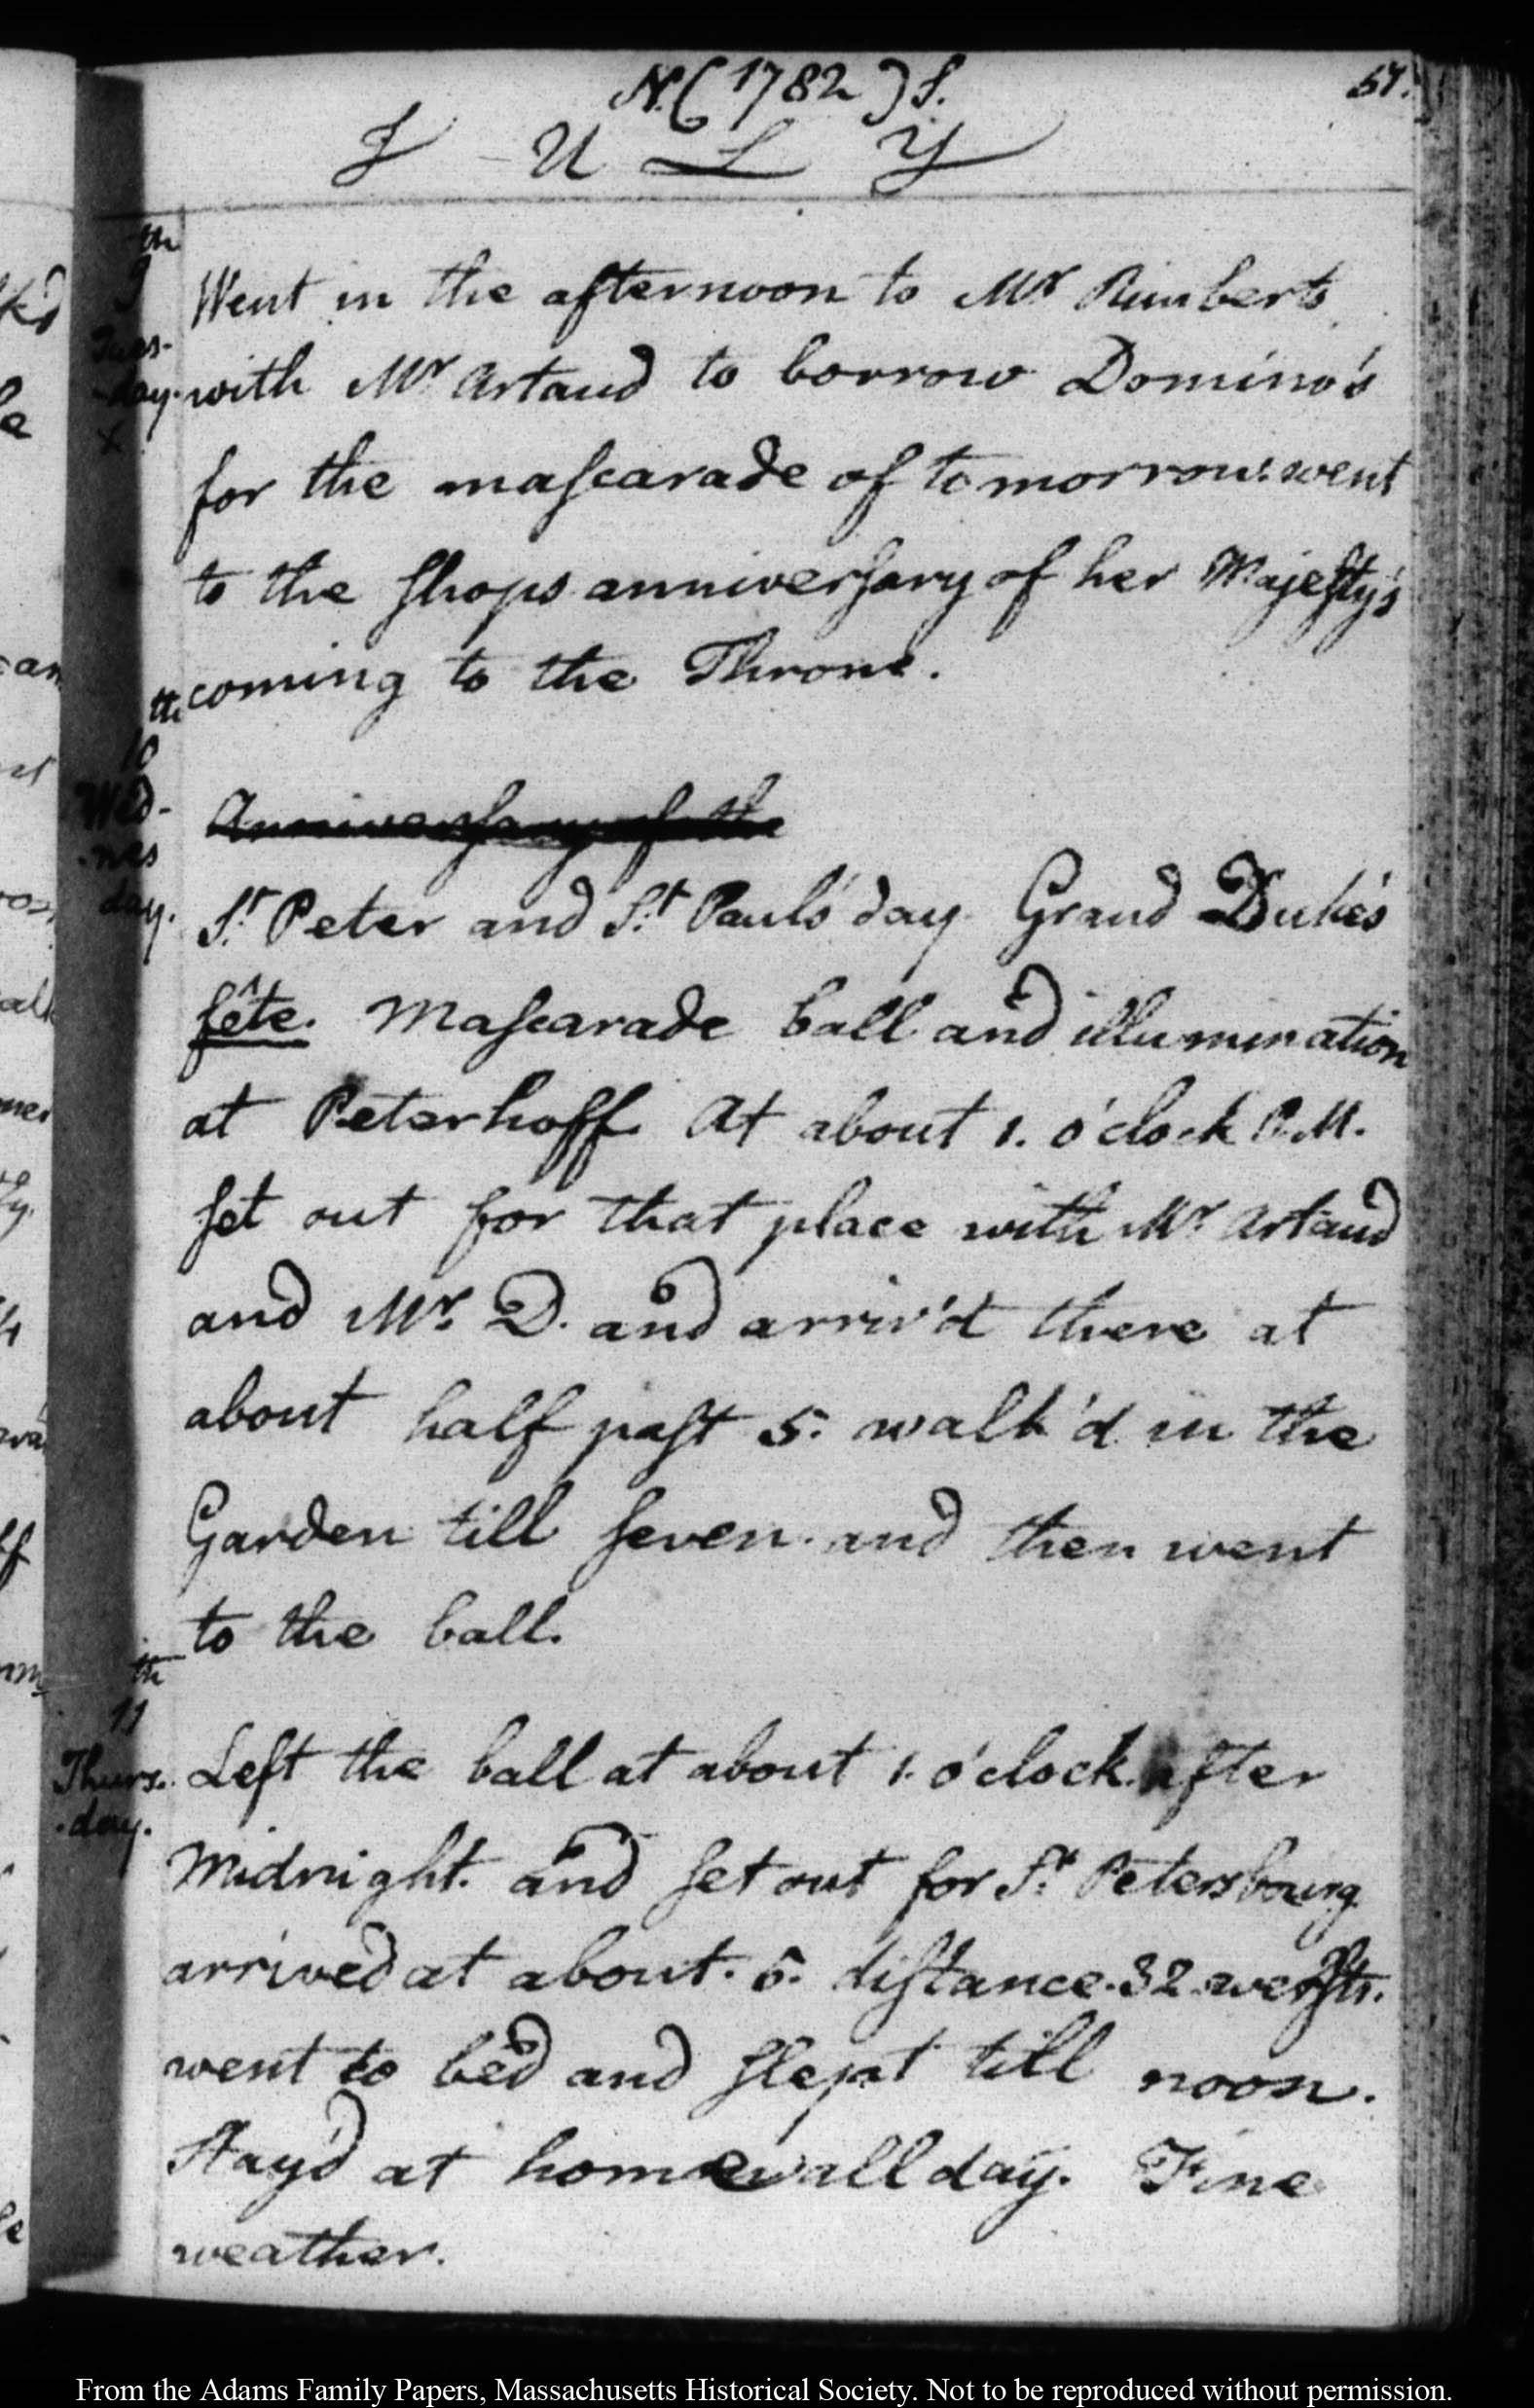 N. (1782) S.
57.
J U L Y
th
9
Tues-
-day.
x
Went in the afternoon to Mr Rimberts
with Mr Artaud to borrow Domino's
for the mascarade of tomorrow. went
to the shops anniversary of her Majesty's
coming to the Throne.
th
10
Wed-
-nes
day.
Anniversary of the
St. Peter and St. Paul's day Grand Duke's
fête. Mascarade ball and illumination
at Peterhoff. At about 1. o'clock P.M.
set out for that place with Mr Artaud
and Mr. D. and arriv'd there at
about half past 5. walk'd in the
Garden till seven. and then went
to the ball.
th
11
Thurs-
-day.
Left the ball at about 1. o'clock after
Midnight. and set out for St. Petersbourg
arrived at about. 5. distance. 32. wersts.
went to bed and slept till noon.
Stay'd at home all day. Fine
weather.
From the Adams Family Papers, Massachusetts Historical Society. Not to be reproduced without permission.